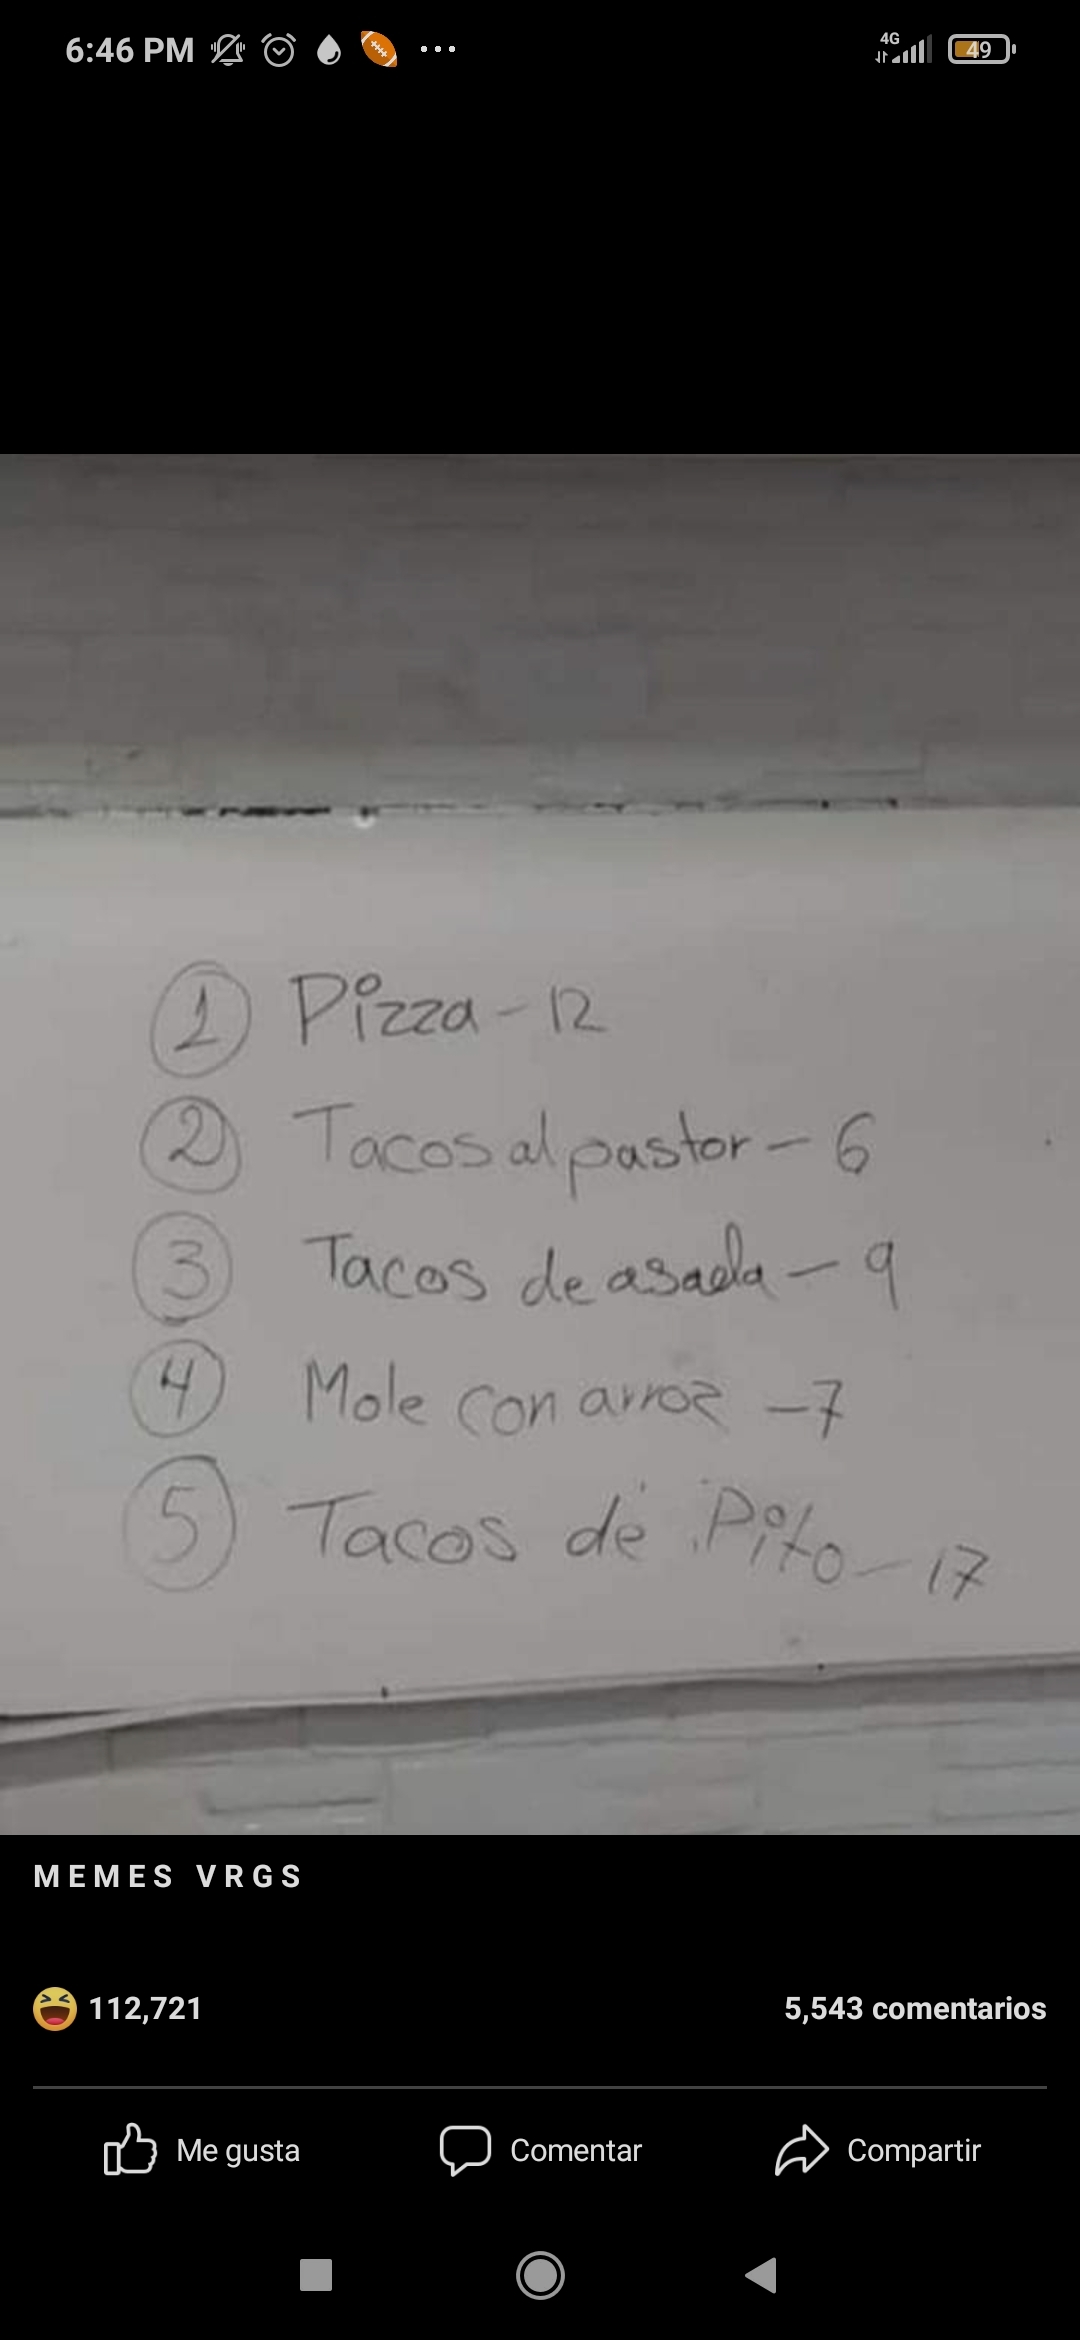 6:46 PM
4G
49
1 Pizza - 12
2 Tacos al pastor - 6
3 Tacos de asada - 9
4 Mole con arroz - 7
5 Tacos de Pito - 17
MEMES VRGS
112,721
5,543 comentarios
Me gusta
Comentar
Compartir